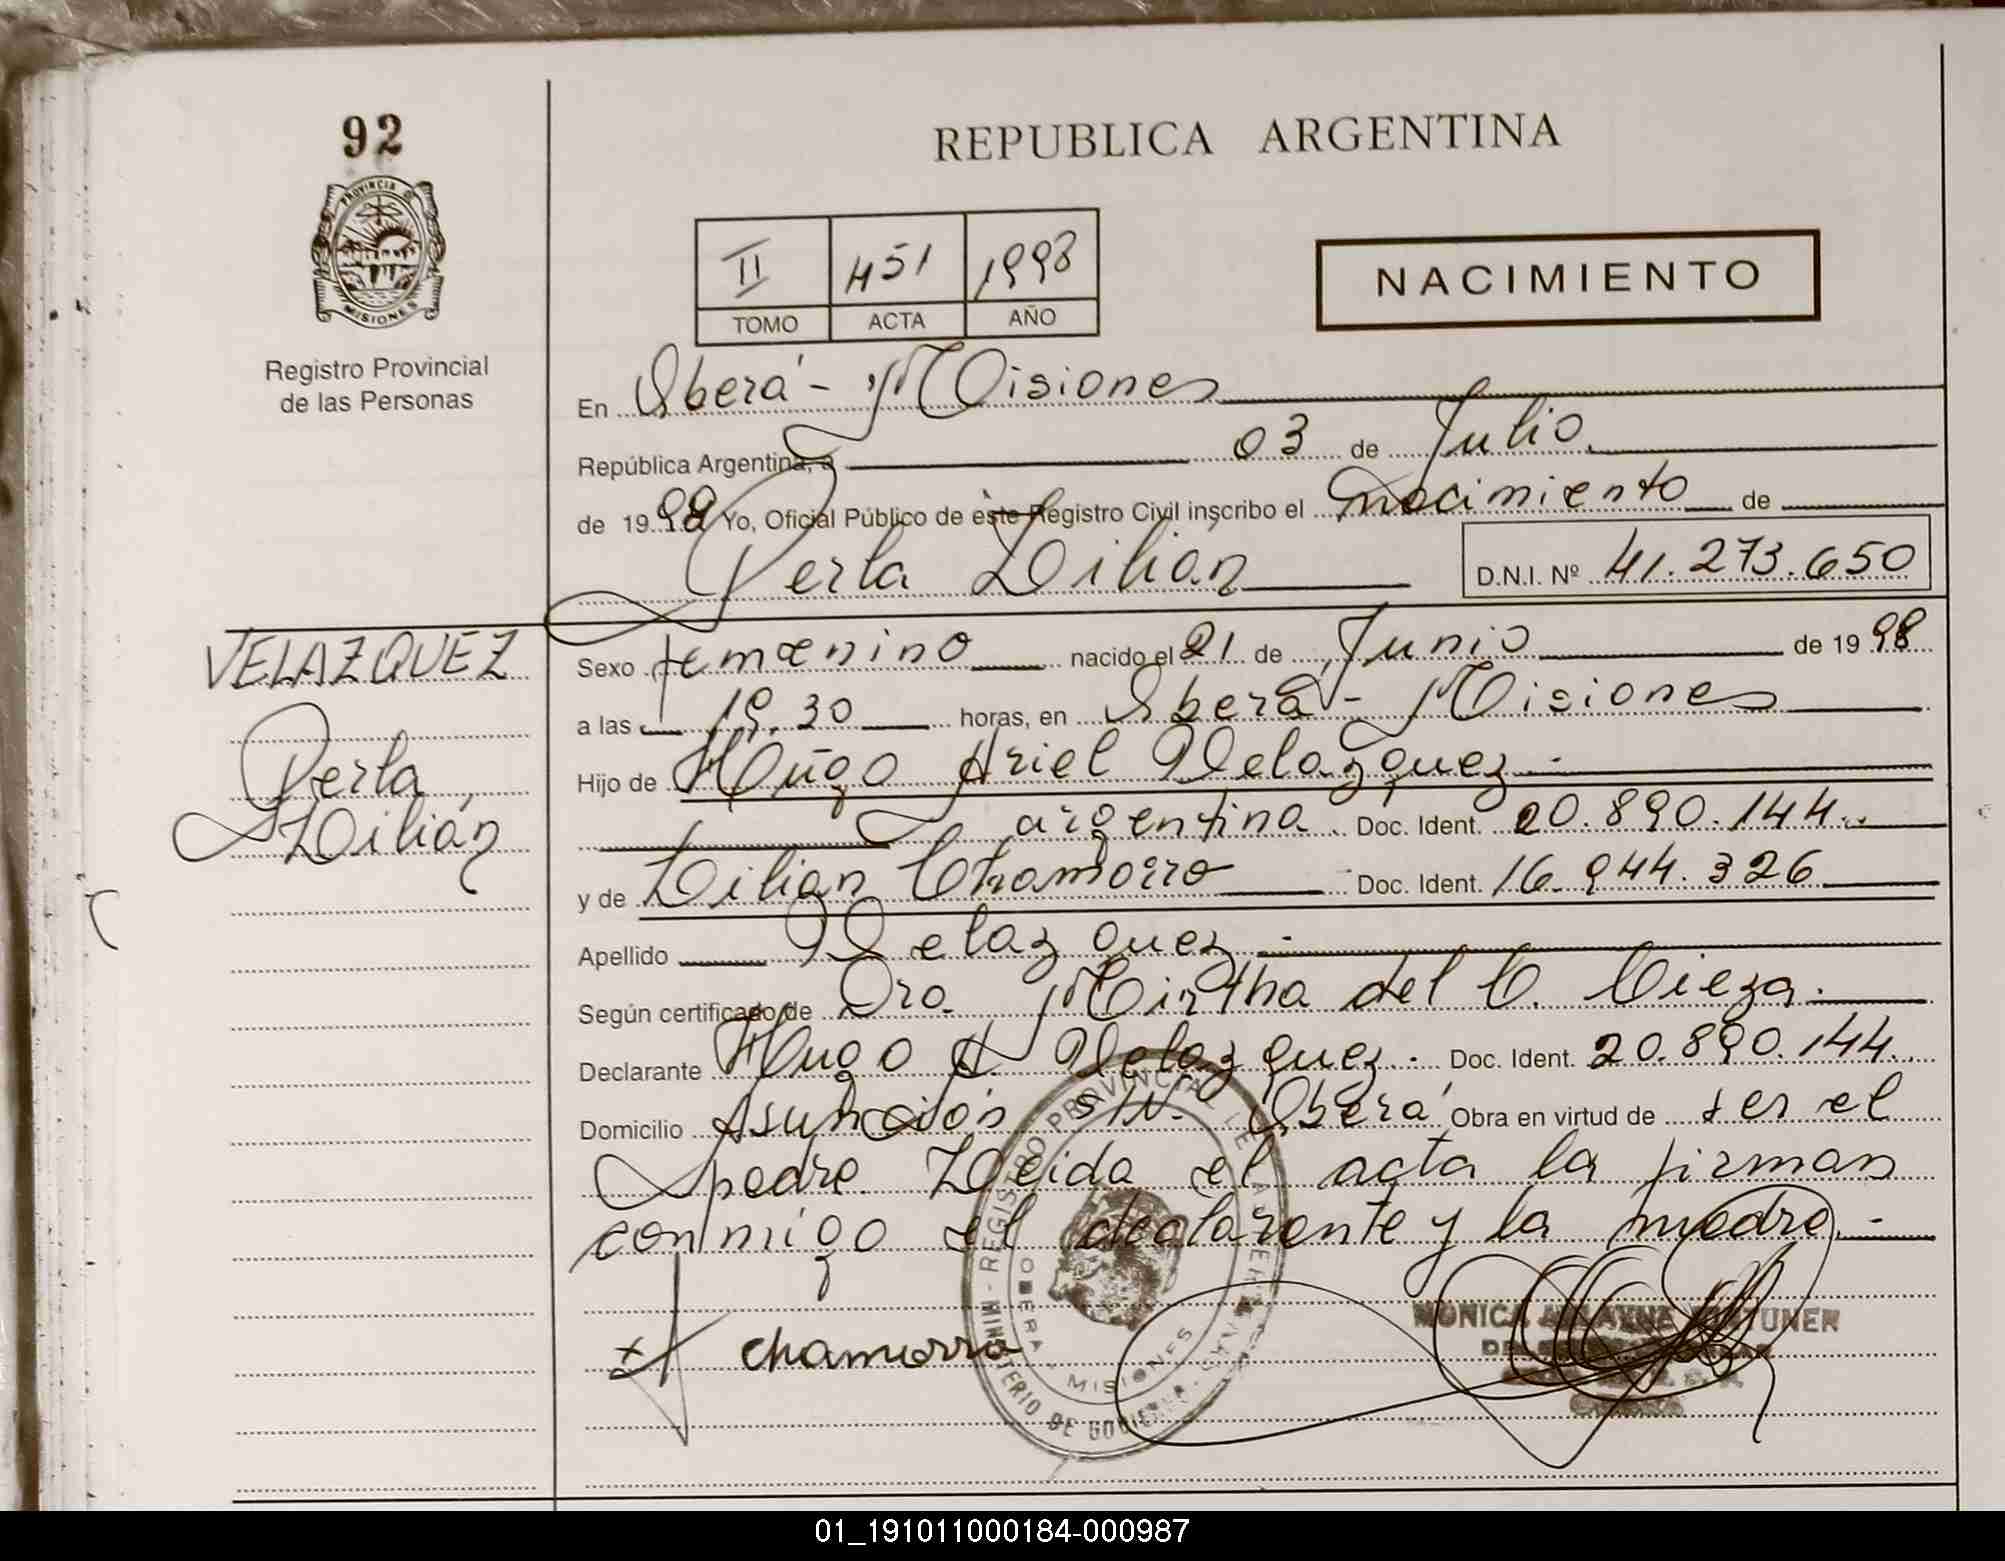 92
PROVINCIA D
MISIONES
Registro Provincial
de las Personas
REPUBLICA ARGENTINA
II 451 1998
TOMO ACTA AÑO
NACIMIENTO
En Oberá - Misiones
República Argentina, a 03 de Julio
de 1998 Yo, Oficial Público de este Registro Civil inscribo el nacimiento de
Perla Lilián
D.N.I. Nº 41.273.650
VELAZQUEZ
Perla
Lilián
Sexo femenino nacido el 21 de Junio de 1998
a las 19.30 horas, en Oberá - Misiones
Hijo de Hugo Ariel Velazquez.-
argentina. Doc. Ident. 20.890.144.-
y de Lilian Chamorro Doc. Ident. 16.944.326
Apellido Velazquez.-
Según certificado de Dra. Mirtha del C. Cieza.-
Declarante Hugo A. Velazquez. Doc. Ident. 20.890.144.
Domicilio Asunción s/N. Oberá Obra en virtud de ser el
padre. Leida el acta la firman
conmigo el declarante y la madre.-
Chamorro
REGISTRO PROVINCIAL DE LAS PERSONAS
MINISTERIO DE GOBIERNO
OBERA - MISIONES
MONICA
01_191011000184-000987